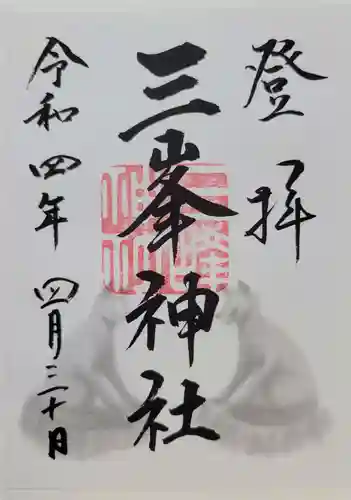 登拝
三峯神社
令和四年
四月二十日